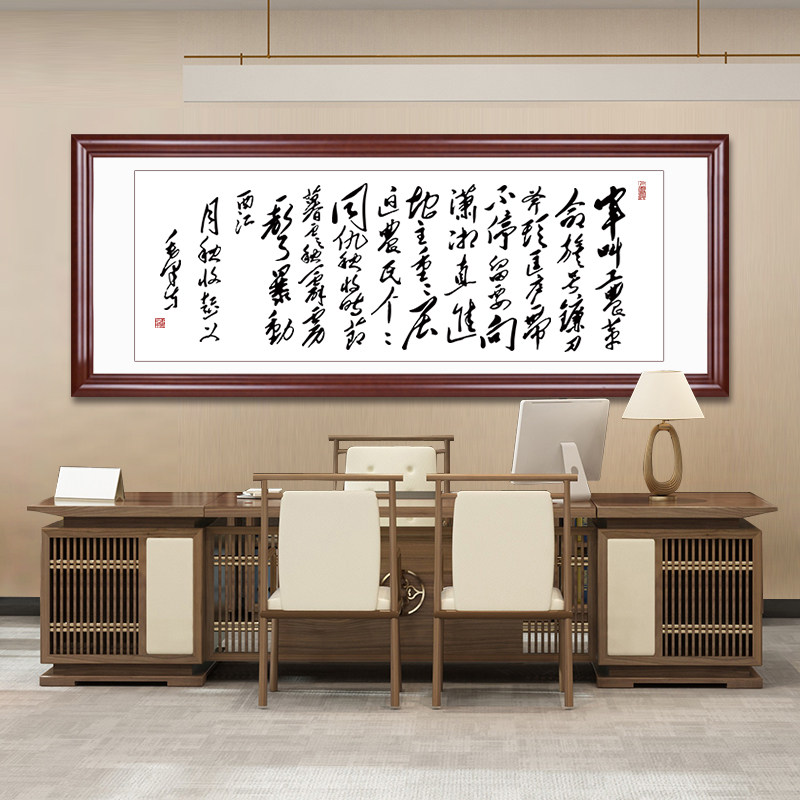 軍叫工農革
命旗号鐮刀
斧頭匡庐一帶
不停留要向
瀟湘直進
地主重重压
迫農民个个
同仇秋收時節
暮雲愁霹雳
一声暴動
西江
月秋收起义
毛泽东